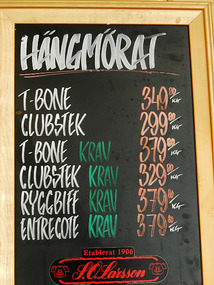 HÄNGMÖRAT
T-BONE 349 00 /KG
CLUBSTEK 299 00 /KG
T-BONE KRAV 379 00 /KG
CLUBSTEK KRAV 329 00 /KG
RYGGBIFF KRAV 379 00 /KG
ENTRECOTE KRAV 379 00 /KG
Etablerat 1906
S.O. Larsson